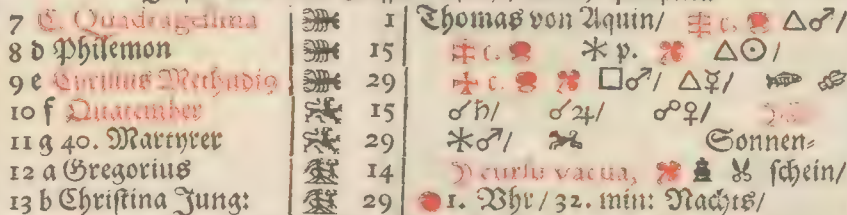 7 C Quadragesima 1 Thomas von Aquin/ c. △♂/
8 d Philemon 15 c. ✶ p. △☉/
9 e Cyrillus Methudig 29 c. □♂/ △☿/
10 f Quatember 15 ☌♄/ ☌♃/ ☍♀/
11 g 40. Martyrer 29 ✶♂/ Sonnen⸗
12 a Gregorius 14 ☽ curſu vacua, ſchein/
13 b Chriſtina Jung: 29 1. Vhr/ 32. min: Nachts/